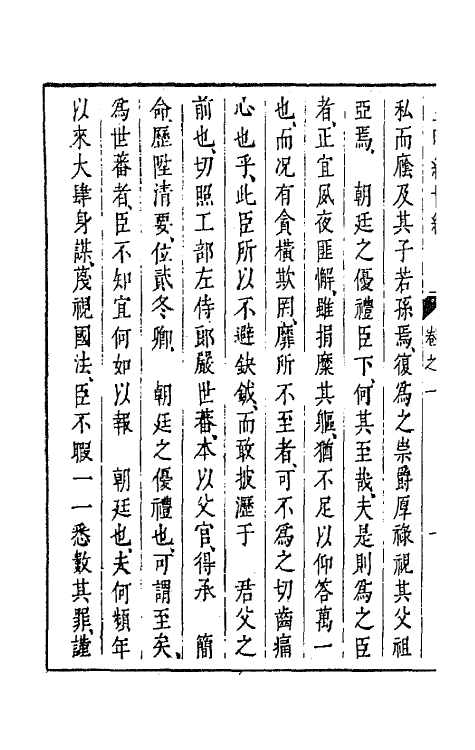 卷之一
私而廕及其子若孫焉、復爲之崇爵厚祿視其父祖
亞焉、 朝廷之優禮臣下、何其至哉、夫是則爲之臣
者、正宜夙夜匪懈、雖捐糜其軀、猶不足以仰答萬一
也、而况有貪橫欺罔、靡所不至者、可不爲之切齒痛
心也乎、此臣所以不避鈇鉞、而敢披瀝于 君父之
前也、切照工部左侍郎嚴世蕃、本以父官、得承 簡
命、歷陞清要、位貳冬卿、 朝廷之優禮也、可謂至矣、
爲世蕃者、臣不知宜何如以報 朝廷也、夫何頻年
以來大肆身謀、蔑視國法、臣不暇一一悉數其罪、謹